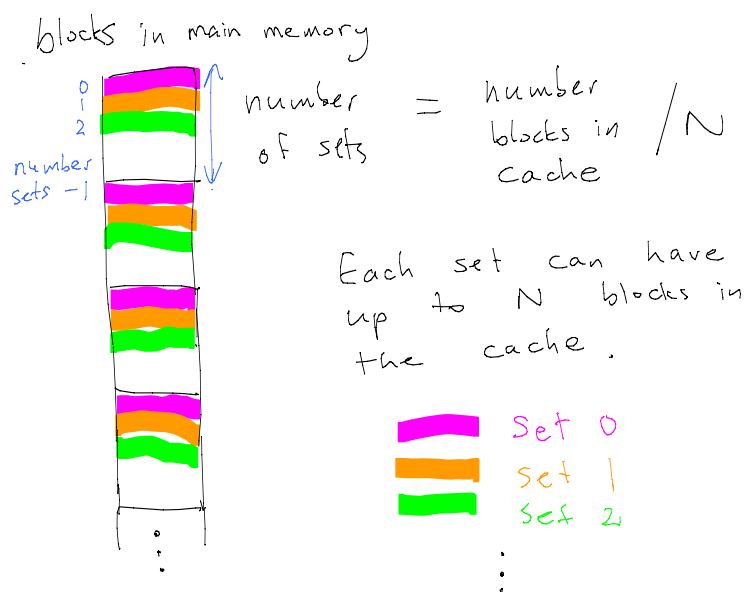 blocks in main memory
0
1
2
number
sets -1
number
of sets
=
number
blocks in
cache
/N
Each set can have
up to N blocks in
the cache.
Set 0
Set 1
Set 2